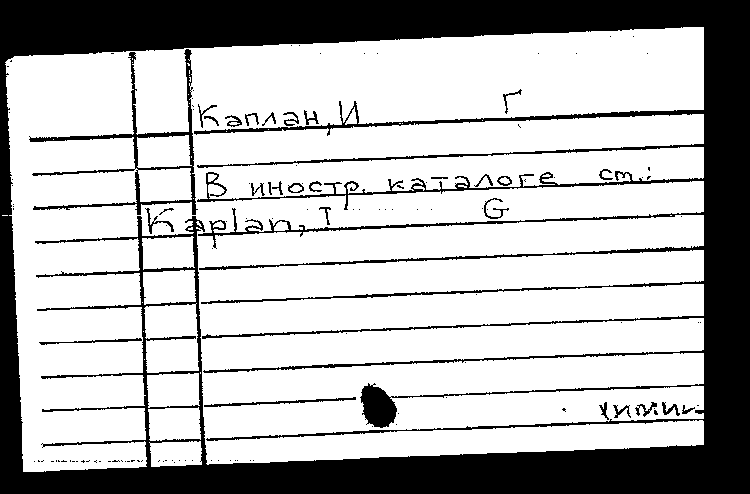 Каплан, И Г
В иностр. каталоге см.:
Kaplan, I G